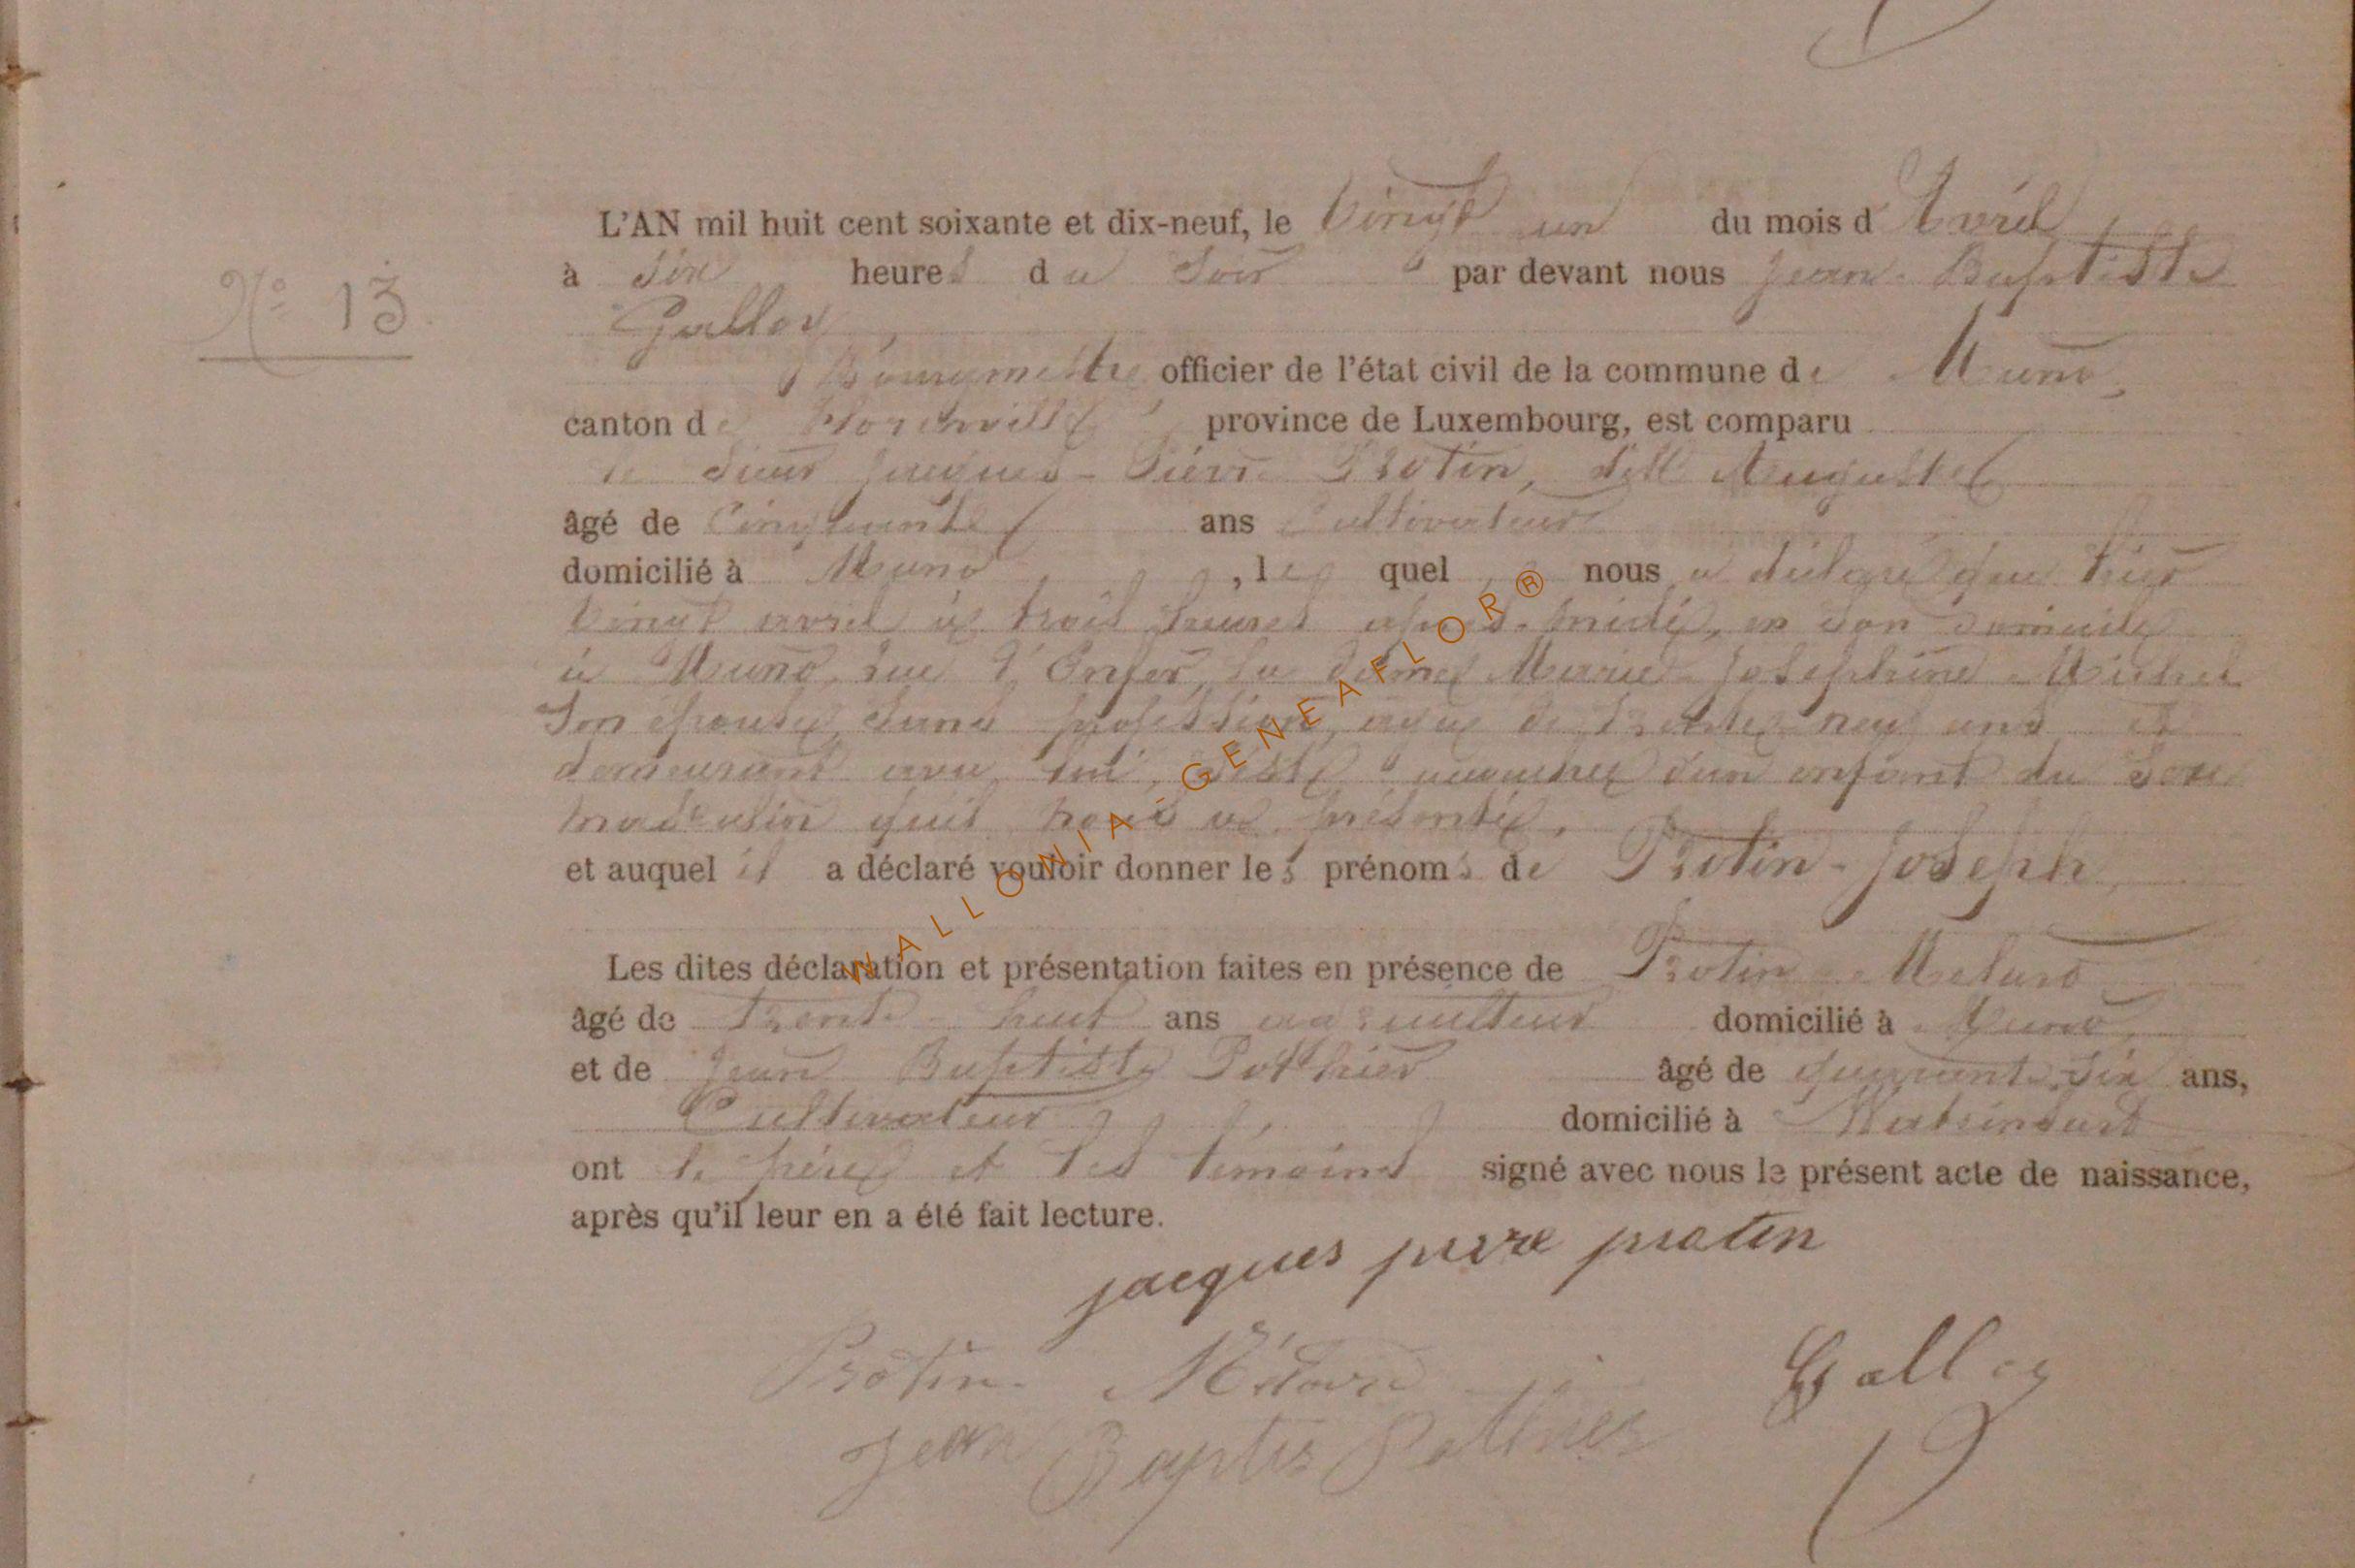 L'AN mil huit cent soixante et dix-neuf, le Vingt un du mois d'Avril
N° 13
à Six heures du Soir par devant nous Jean-Baptiste
Galloy
Bourgmestre, officier de l'état civil de la commune de Muno,
canton de Florenville province de Luxembourg, est comparu
le Sieur Jacques-Pierre Protin, dit Auguste
âgé de Cinquante ans Cultivateur
domicilié à Muno, lequel nous a déclaré que hier
Vingt avril à trois heures après-midi, en son domicile
à Muno, rue d'Enfer, la dame Marie-Joséphine Michel
Son épouse, Sans profession, agée de trente-neuf ans et
demeurant avec lui, s'est accouchée d'un enfant du Sexe
masculin qu'il nous a présenté,
et auquel il a déclaré vouloir donner les prénoms de Protin-Joseph
Les dites déclaration et présentation faites en présence de Protin
âgé de Trente-huit ans agriculteur domicilié à Muno
et de Jean Baptiste Potthier âgé de quarante-six ans,
Cultivateur domicilié à
ont le père et les témoins signé avec nous le présent acte de naissance,
après qu'il leur en a été fait lecture.
jacques piere protin
Protin
Galloy
Jean Baptis Potthier
WALLONIA-GENEAFLOR®